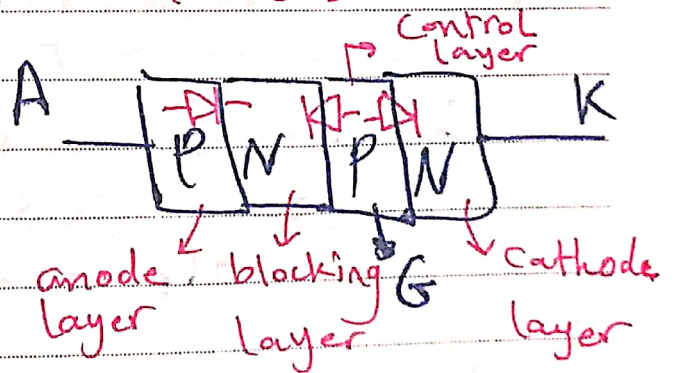 Control
layer
A
K
P N P N
anode
layer
blocking
layer
G
cathode
layer